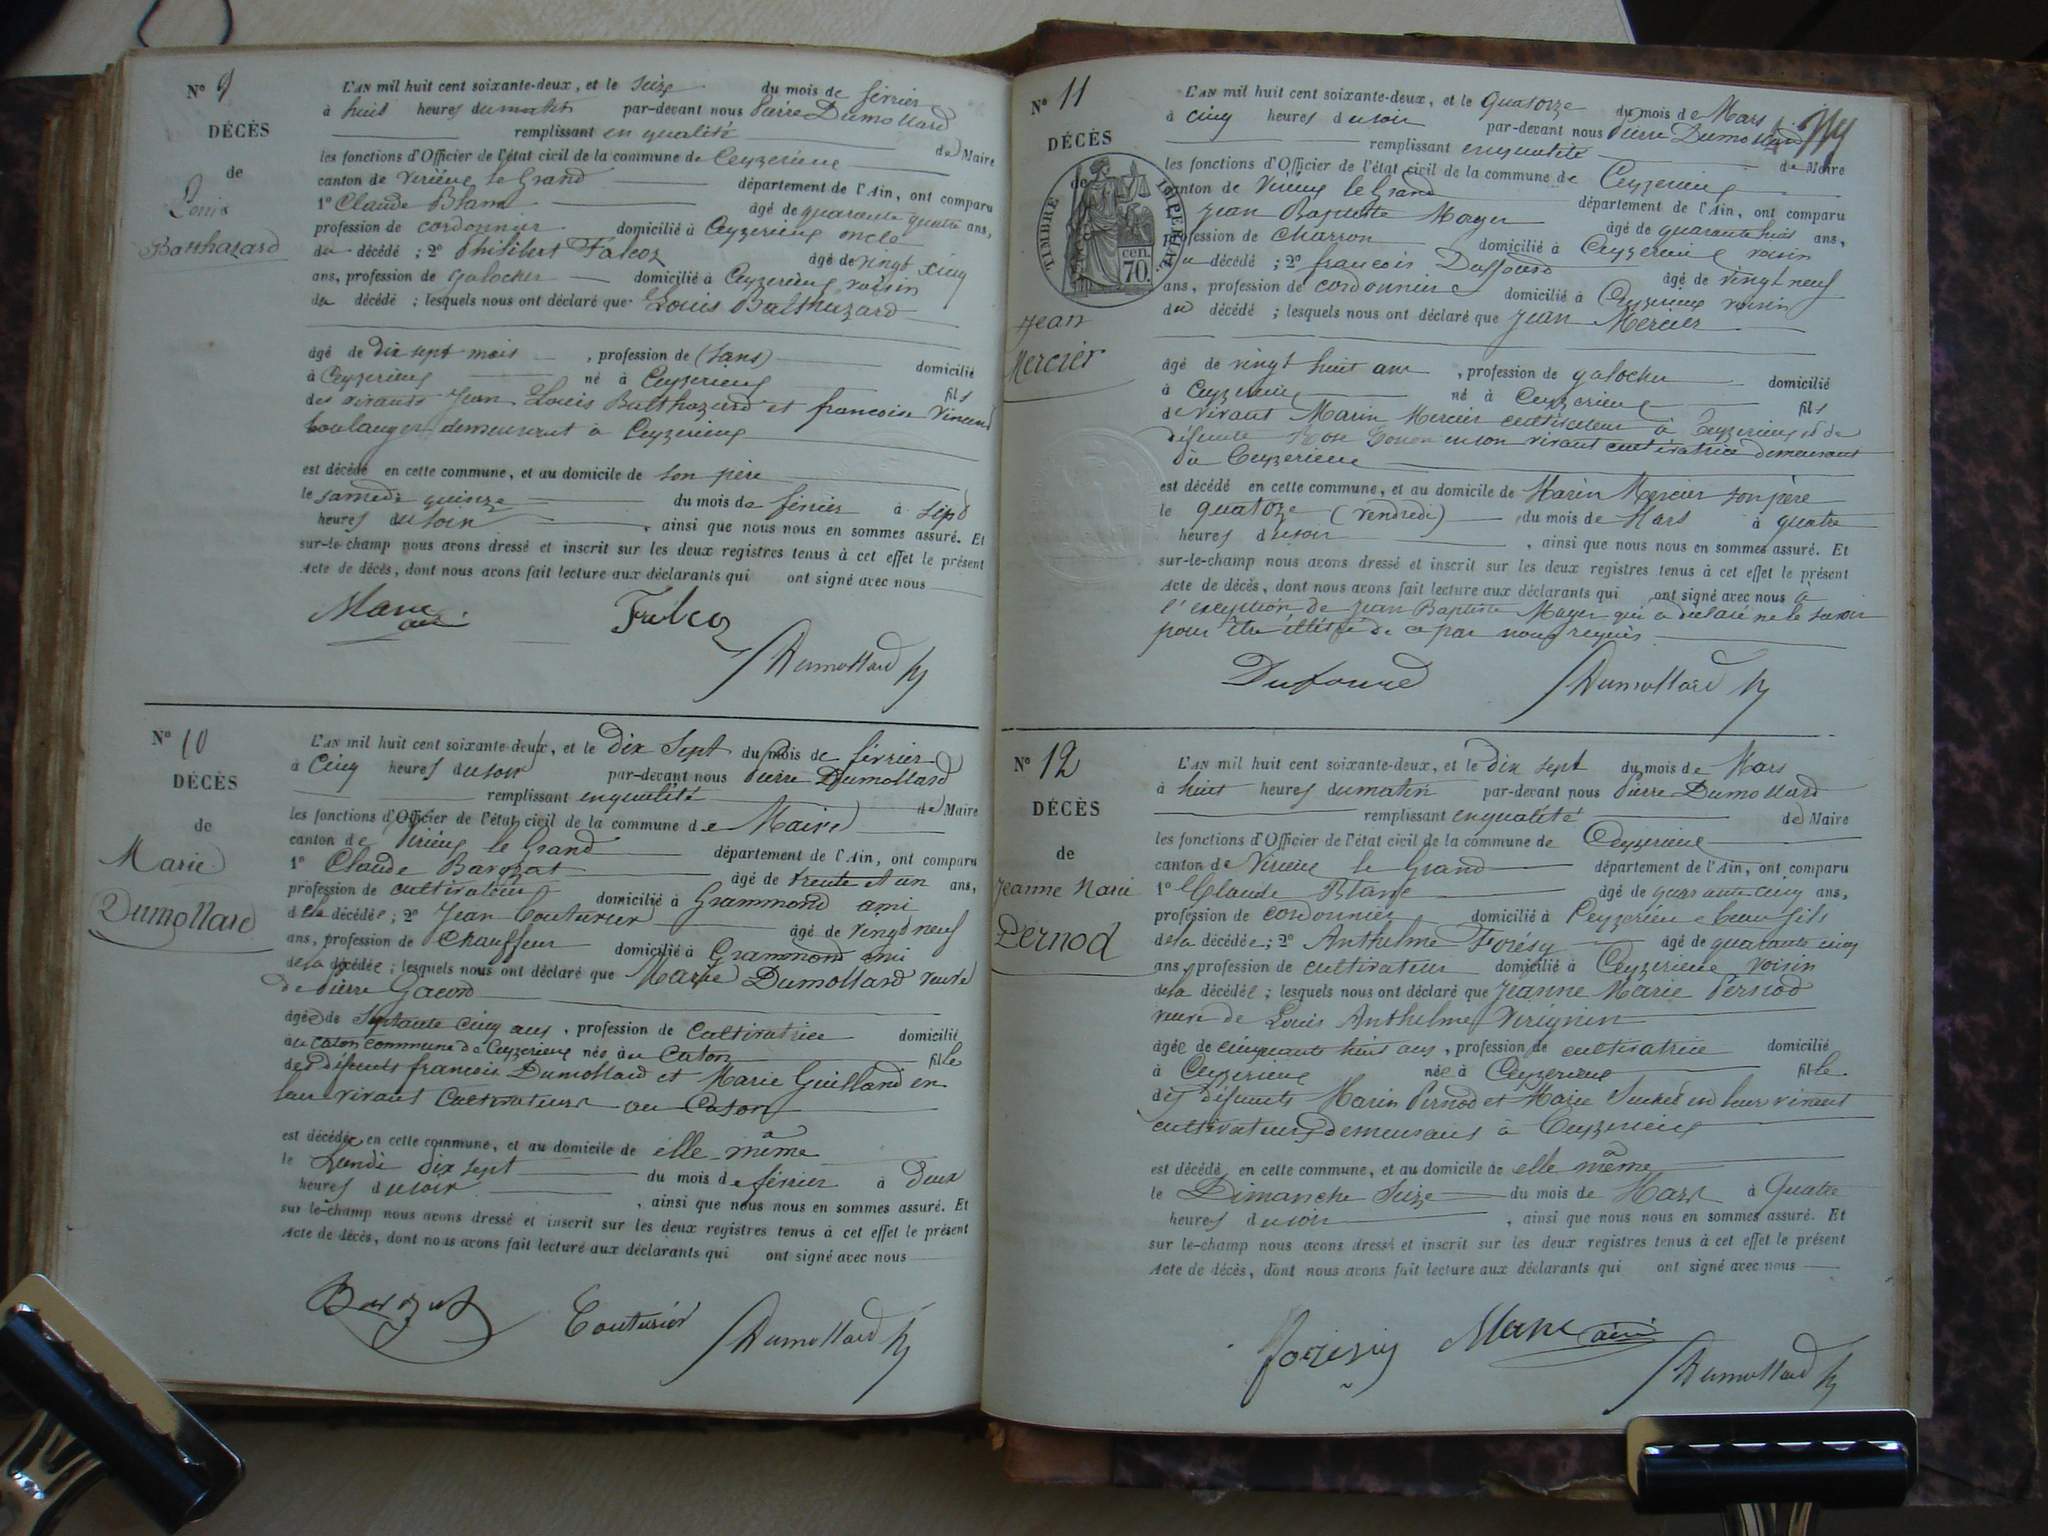 N° 9
DÉCÈS
de
Louis
Balthazard
L'AN mil huit cent soixante-deux, et le seize du mois de février
à huit heures du matin par-devant nous Pierre Dumollard
remplissant en qualité de Maire
les fonctions d'Officier de l'état civil de la commune de Ceyzerieux
canton de Virieux le Grand département de l'Ain, ont comparu
1° Claude Blanc âgé de quarante quatre ans,
profession de cordonnier domicilié à Ceyzerieux oncle
du décédé ; 2° Philibert Falcoz âgé de vingt cinq
ans, profession de galocher domicilié à Ceyzerieux voisin
du décédé ; lesquels nous ont déclaré que Louis Balthazard
âgé de dix sept mois , profession de (sans) domicilié
à Ceyzerieux né à Ceyzerieux fils
des vivants Jean Louis Balthazard et françoise Vincent
boulanger demeurant à Ceyzerieux
est décédé en cette commune, et au domicile de son père
le samedi quinze du mois de février à sept
heures du soir , ainsi que nous nous en sommes assuré. Et
sur-le-champ nous avons dressé et inscrit sur les deux registres tenus à cet effet le présent
Acte de décès, dont nous avons fait lecture aux déclarants qui ont signé avec nous
Falcoz
Dumollard
N° 10
DÉCÈS
de
Marie
Dumollard
L'AN mil huit cent soixante-deux, et le dix sept du mois de février
à cinq heures du soir par-devant nous Pierre Dumollard
remplissant en qualité de Maire
les fonctions d'Officier de l'état civil de la commune de Maire
canton de Virieux le Grand département de l'Ain, ont comparu
1° Claude Barozat âgé de trente et un ans,
profession de cultivateur domicilié à Grammond ami
de la décédée ; 2° Jean Couturier âgé de vingt neuf
ans, profession de Chauffeur domicilié à Grammond ami
de la décédée ; lesquels nous ont déclaré que Marie Dumollard veuve
de Pierre Gacon
âgée de septante cinq ans , profession de cultivatrice domicilié
au caton commune de Ceyzerieux née au Caton fille
des défunts françois Dumollard et Marie Guilland en
leur vivant cultivateurs au Caton
est décédée en cette commune, et au domicile de elle même
le Lundi dix sept du mois de février à deux
heures du soir , ainsi que nous nous en sommes assuré. Et
sur-le-champ nous avons dressé et inscrit sur les deux registres tenus à cet effet le présent
Acte de décès, dont nous avons fait lecture aux déclarants qui ont signé avec nous
Couturier
Dumollard
N° 11
DÉCÈS
de
TIMBRE IMPÉRIAL
70 cen.
Jean
Mercier
L'AN mil huit cent soixante-deux, et le quatorze du mois de Mars
à cinq heures du soir par-devant nous Pierre Dumollard
remplissant en qualité de Maire
les fonctions d'Officier de l'état civil de la commune de Ceyzerieux
canton de Virieux le Grand département de l'Ain, ont comparu
Jean Baptiste Moyer âgé de quarante huit ans,
profession de Charron domicilié à Ceyzerieux voisin
du décédé ; 2° françois Duffourd âgé de vingt neuf
ans, profession de cordonnier domicilié à Ceyzerieux voisin
du décédé ; lesquels nous ont déclaré que Jean Mercier
âgé de vingt huit ans , profession de galocher domicilié
à Ceyzerieux né à Ceyzerieux fils
de vivant Marin Mercier cultivateur à Ceyzerieux et de
défunte Rose en son vivant cultivatrice demeurant
à Ceyzerieux
est décédé en cette commune, et au domicile de Marin Mercier son père
le quatoze (vendredi) du mois de Mars à quatre
heures du soir , ainsi que nous nous en sommes assuré. Et
sur-le-champ nous avons dressé et inscrit sur les deux registres tenus à cet effet le présent
Acte de décès, dont nous avons fait lecture aux déclarants qui ont signé avec nous à
l'exeption de Jean Baptiste Moyer qui a déclaré ne le savoir
pour être illétré de ce par nous requis
Dufourd
Dumollard
N° 12
DÉCÈS
de
Jeanne Marie
Pernod
L'AN mil huit cent soixante-deux, et le dix sept du mois de Mars
à huit heures du matin par-devant nous Pierre Dumollard
remplissant en qualité de Maire
les fonctions d'Officier de l'état civil de la commune de Ceyzerieux
canton de Virieux le Grand département de l'Ain, ont comparu
1° Claude Blanc âgé de quarante cinq ans,
profession de cordonnier domicilié à Ceyzerieux beau fils
de la décédée ; 2° Anthelme Forésy âgé de quarante cinq
ans, profession de cultivateur domicilié à Ceyzerieux voisin
de la décédée ; lesquels nous ont déclaré que Jeanne Marie Pernod
veuve de Louis Anthelme Virignin
âgée de cinquante huit ans , profession de cultivatrice domicilié
à Ceyzerieux née à Ceyzerieux fille
des défunts Marin Pernod et Marie en leur vivant
cultivateurs demeurant à Ceyzerieux
est décédé en cette commune, et au domicile de elle même
le Dimanche seize du mois de Mars à quatre
heures du soir , ainsi que nous nous en sommes assuré. Et
sur le-champ nous avons dressé et inscrit sur les deux registres tenus à cet effet le présent
Acte de décès, dont nous avons fait lecture aux déclarants qui ont signé avec nous
Dumollard